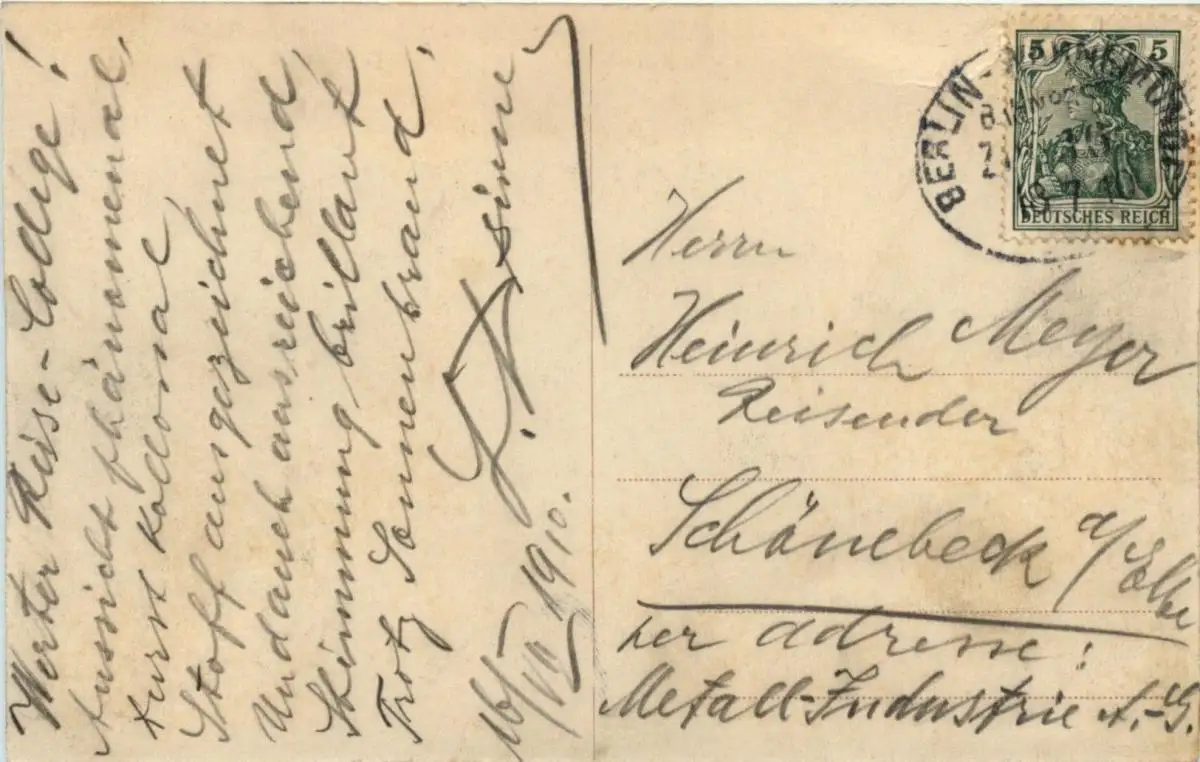 Werter Reise-College!
Aussicht phänomenal,
Kurst kollosal,
Stoff ausgezeichnet
Und auch ausreichend,
Stimmung brillant
Trotz Sonnenbrand,
16/VII 1910.
BERLIN
5 5
7 10
DEUTSCHES REICH
Herrn
Heinrich Meyer
Reisender
Schönebeck a/Elbe
per adresse:
Metall-Industrie A.-G.